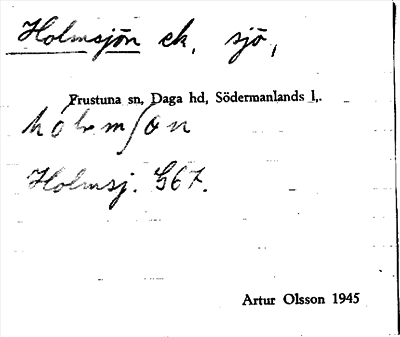 Holmsjön ek, sjö,
Frustuna sn, Daga hd, Södermanlands l.
Holmsj. G67.
Artur Olsson 1945